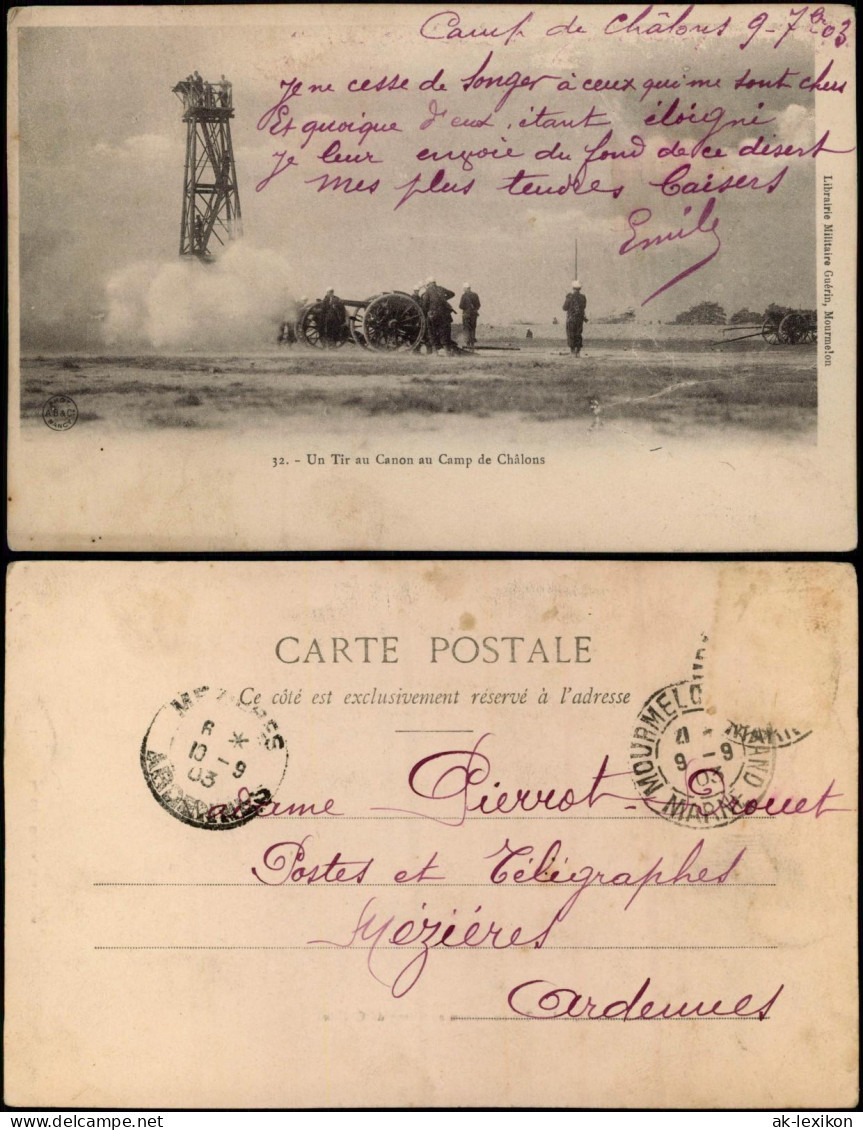 Camp de Châlons 9-7bre 03
Je ne cesse de songer à ceux qui me sont chers
Et quoique d'eux, étant éloigné
Je leur envoie du fond de ce désert
Mes plus tendres baisers
Emile
Librairie Militaire Guérin, Mourmelon
NANCY
32. - Un Tir au Canon au Camp de Châlons
CARTE POSTALE
Ce côté est exclusivement réservé à l'adresse
MEZIERES
6 *
10 - 9
03
ARDENNES
MOURMELON
9 - 9
03
MARNE
Pierrot-
Postes et Télégraphes
Mézières
Ardennes
www.ak-ansichtskarten.de
ak-lexikon